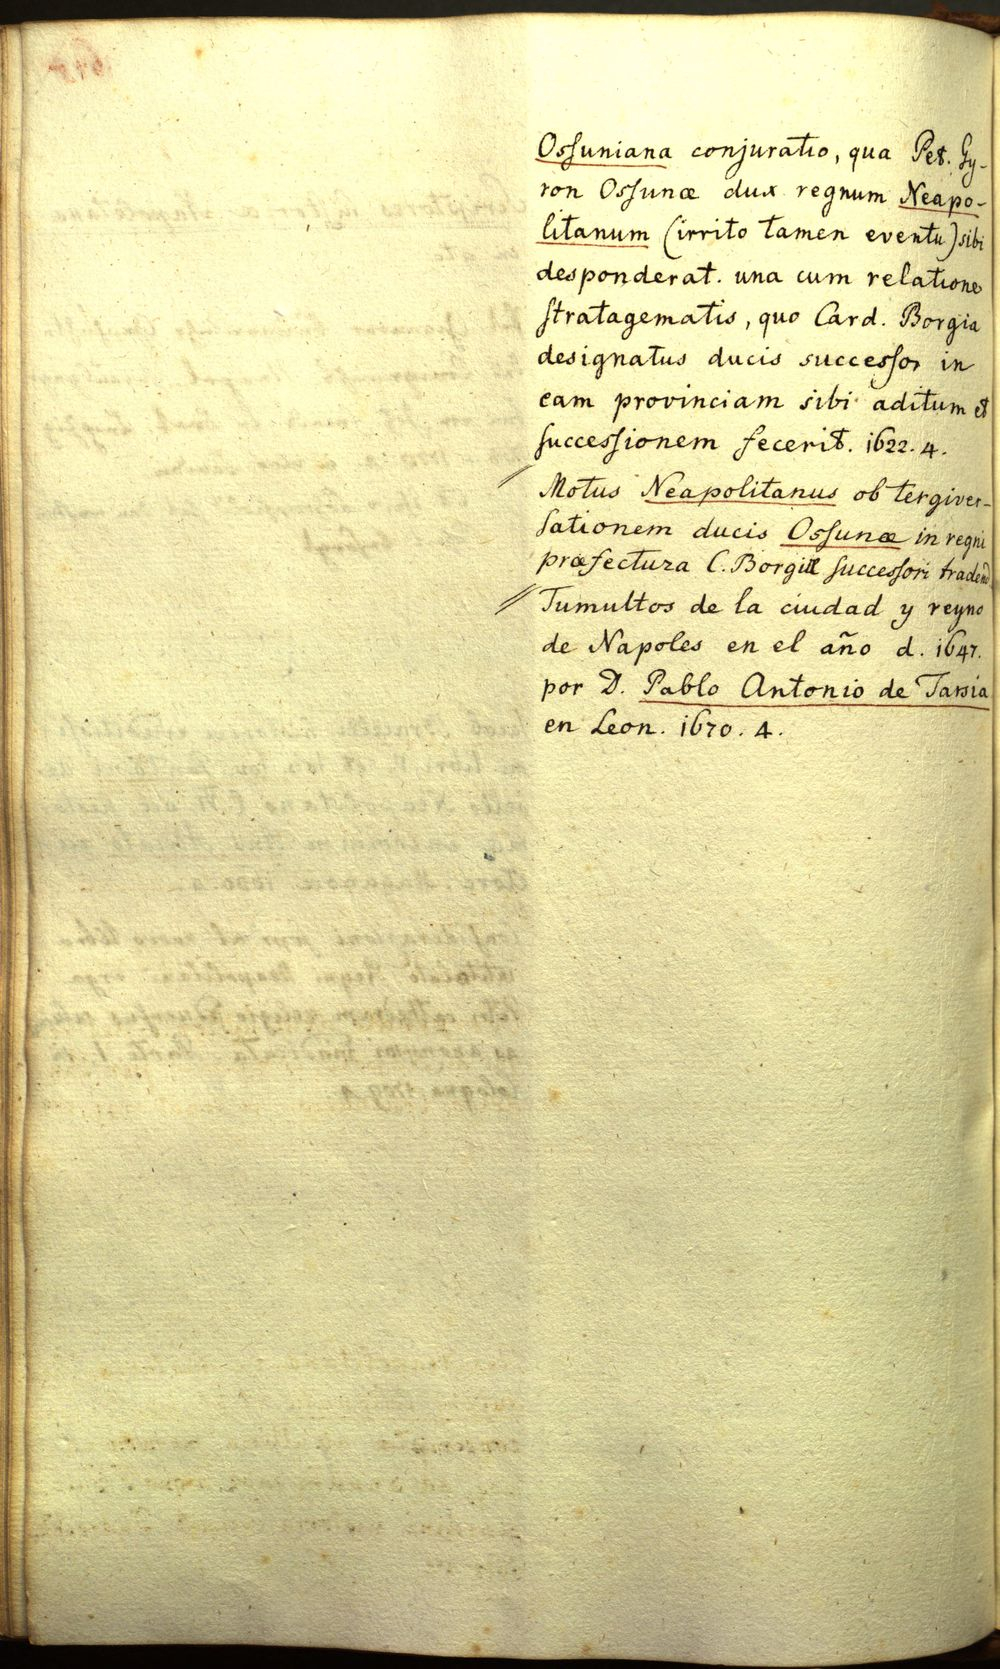 Ossuniana conjuratio, qua Pet. Gy-
ron Ossunæ dux regnum Neapo-
litanum (irrito tamen eventu) sibi
desponderat. una cum relatione
stratagematis, quo Card. Borgia
designatus ducis successor in
eam provinciam sibi aditum et
successionem fecerit. 1622. 4.
Motus Neapolitanus ob tergiver-
sationem ducis Ossunæ in regni
præfectura C. Borgiæ successori tradend
Tumultos de la ciudad y reyno
de Napoles en el año d. 1647.
por D. Pablo Antonio de Tarsia
en Leon. 1670. 4.